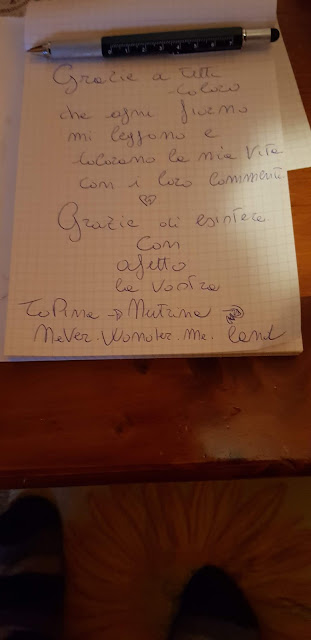 Grazie a tutti
coloro
che ogni giorno
mi leggono e
colorano la mia vita
con i loro commenti
Grazie di esistere
con
afetto
la vostra
ToPina → Mutina →
Never.Wonder.me. land